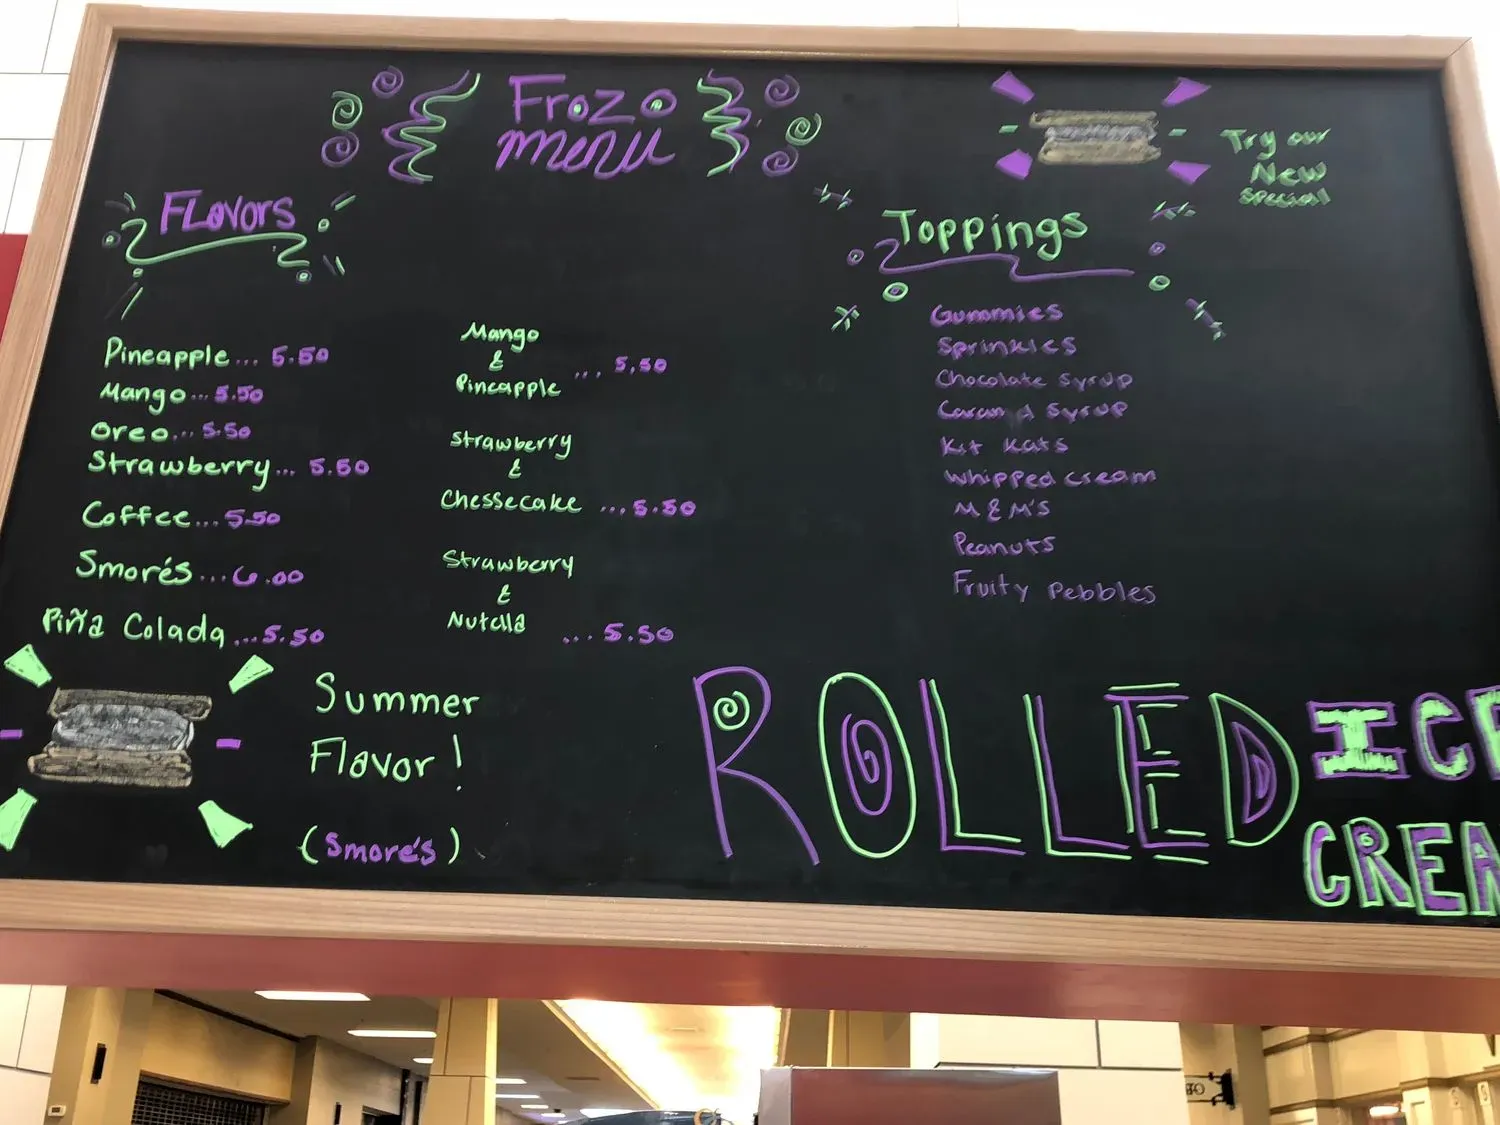 Frozo
menu
Try our
New
special
FLavors
Pineapple... 5.50
Mango... 5.50
Oreo... 5.50
Strawberry... 5.50
Coffee... 5.50
Smorés... 6.00
Piña Colada... 5.50
Mango
&
Pineapple ... 5.50
Strawberry
&
Chessecake ... 5.50
Strawberry
&
Nutella ... 5.50
Toppings
Gummies
Sprinkles
Chocolate Syrup
Syrup
Kit Kats
Whipped cream
M & M's
Peanuts
Fruity Pebbles
Summer
Flavor!
(Smore's)
ROLLED
ICE
CREA